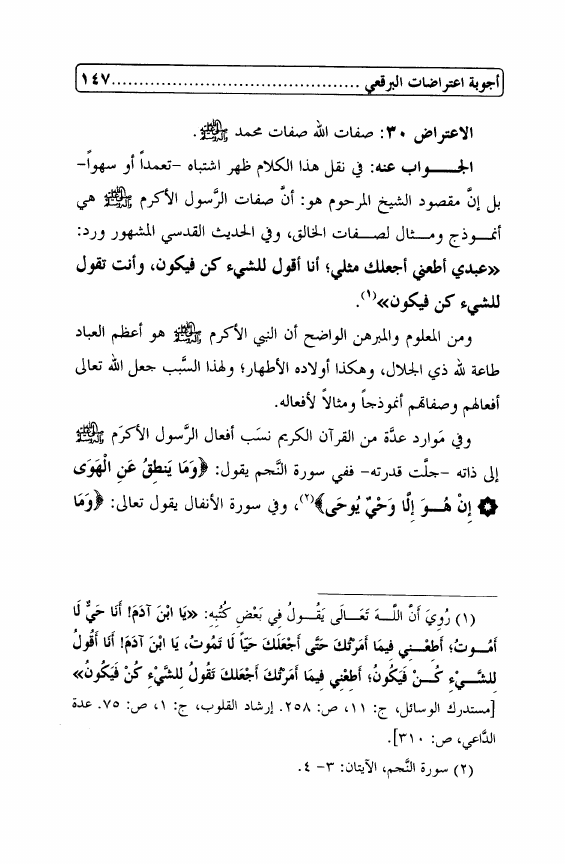 أجوبة اعتراضات البرقعي ................................................ ١٤٧
الاعتراض ٣٠: صفات الله صفات محمد ﷺ.
الجـــواب عنه: في نقل هذا الكلام ظهر اشتباه -تعمداً أو سهواً-
بل إنَّ مقصود الشيخ المرحوم هو: أنَّ صفات الرَّسول الأكرم ﷺ هي
أنمـــوذج ومـــثال لصـــفات الخالق، وفي الحديث القدسي المشهور ورد:
«عبدي أطعني أجعلك مثلي؛ أنا أقول للشيء كن فيكون، وأنت تقول
للشيء كن فيكون»(١).
ومن المعلوم والمبرهن الواضح أن النبي الأكرم ﷺ هو أعظم العباد
طاعة لله ذي الجلال، وهكذا أولاده الأطهار؛ ولهذا السَّبب جعل الله تعالى
أفعالهم وصفاتهم أنموذجاً ومثالاً لأفعاله.
وفي مَوارد عدَّة من القرآن الكريم نسَب أفعال الرَّسول الأكرَم ﷺ
إلى ذاته -جلَّت قدرته- ففي سورة النَّجم يقول: ﴿وَمَا يَنطِقُ عَنِ الْهَوَى
۞ إِنْ هُـــوَ إِلَّا وَحْيٌ يُوحَى﴾(٢)، وفي سورة الأنفال يقول تعالى: ﴿وَمَا
(١) رُوِيَ أَنَّ اللَّـــهَ تَعَـــالَى يَقُـــولُ فِي بَعْضِ كُتُبِهِ: «يَا ابْنَ آدَمَ! أَنَا حَيٌّ لَا
أَمُوتُ؛ أَطِعْـــنِي فِيمَا أَمَرْتُكَ حَتَّى أَجْعَلَكَ حَيّاً لَا تَمُوتُ، يَا ابْنَ آدَمَ! أَنَا أَقُولُ
لِلشَّـــيْءِ كُـــنْ فَيَكُونُ؛ أَطِعْنِي فِيمَا أَمَرْتُكَ أَجْعَلكَ تَقُولُ لِلشَّيْءِ كُنْ فَيَكُونُ»
[مستدرك الوسائل، ج: ١١، ص: ٢٥٨. إرشاد القلوب، ج: ١، ص: ٧٥. عدة
الدَّاعي، ص: ٣١٠].
(٢) سورة النَّجم، الآيتان: ٣- ٤.